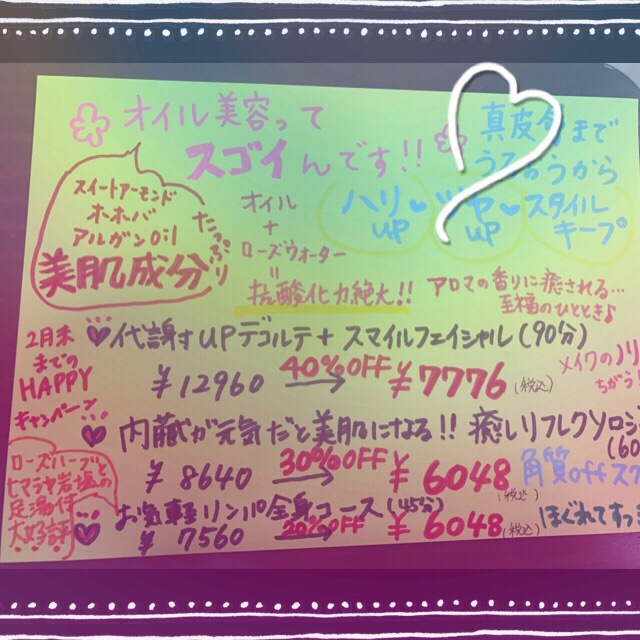 オイル美容って
スゴイんです!!
真皮層まで
うるおうから
ハリup ツヤup スタイルキープ
スイートアーモンド
ホホバ
アルガンOil
たっぷり
美肌成分
オイル
+
ローズウォーター
=
抗酸化力絶大!!
アロマの香りに癒される…
至福のひととき♪
2月末
までの
HAPPY
キャンペーン
代謝upデコルテ+スマイルフェイシャル(90分)
¥12960 40%OFF → ¥7776(税込)
メイクのノリ
ちがう!
内臓が元気だと美肌になる!! 癒しリフレクソロジ
(60
¥8640 30%OFF → ¥6048(税込)
角質offス
ローズハーブと
ヒマラヤ岩塩の
足湯付
大好評
お気軽リンパ全身コース(45分)
¥7560 20%OFF → ¥6048(税込)
ほぐれてすっき